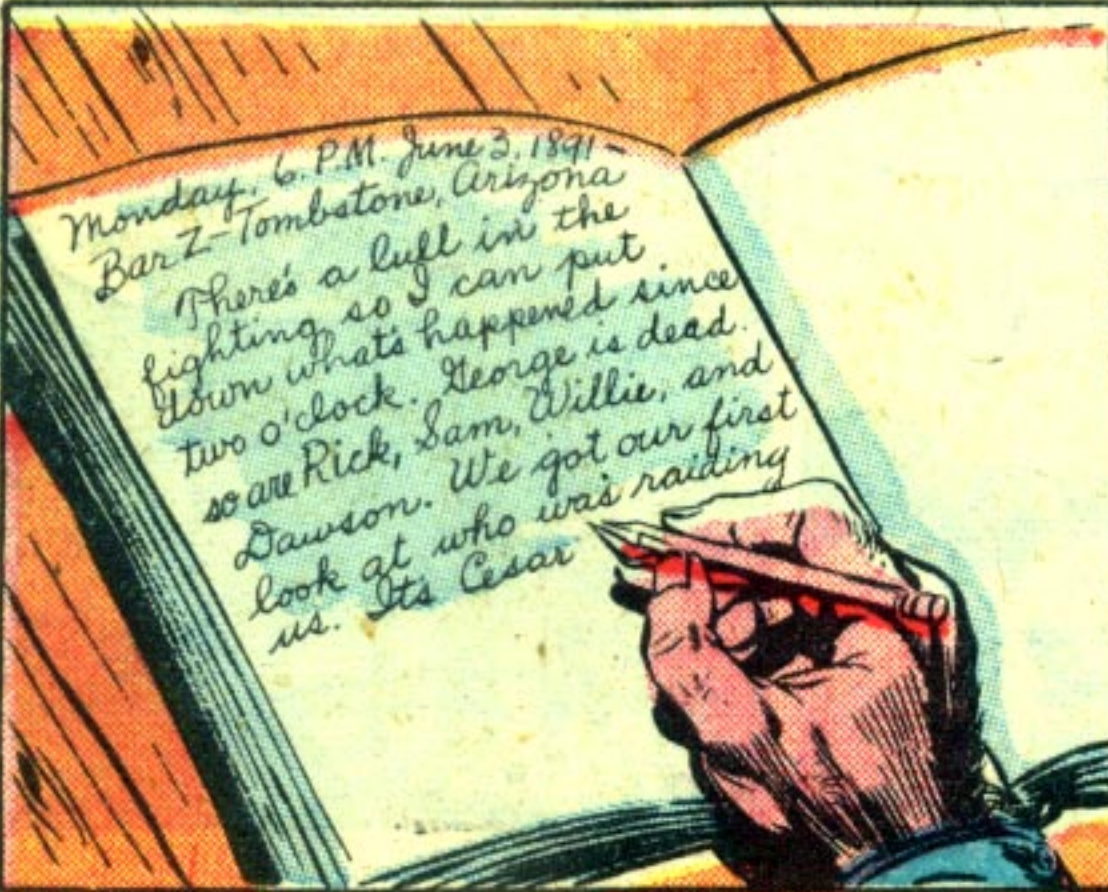 Monday, 6. P.M. June 3, 1891-
Bar Z-Tombstone, Arizona
There's a lull in the
fighting so I can put
down what's happened since
two o'clock. George is dead.
so are Rick, Sam, Willie, and
Dawson. We got our first
look at who was raiding
us. Its Cesar